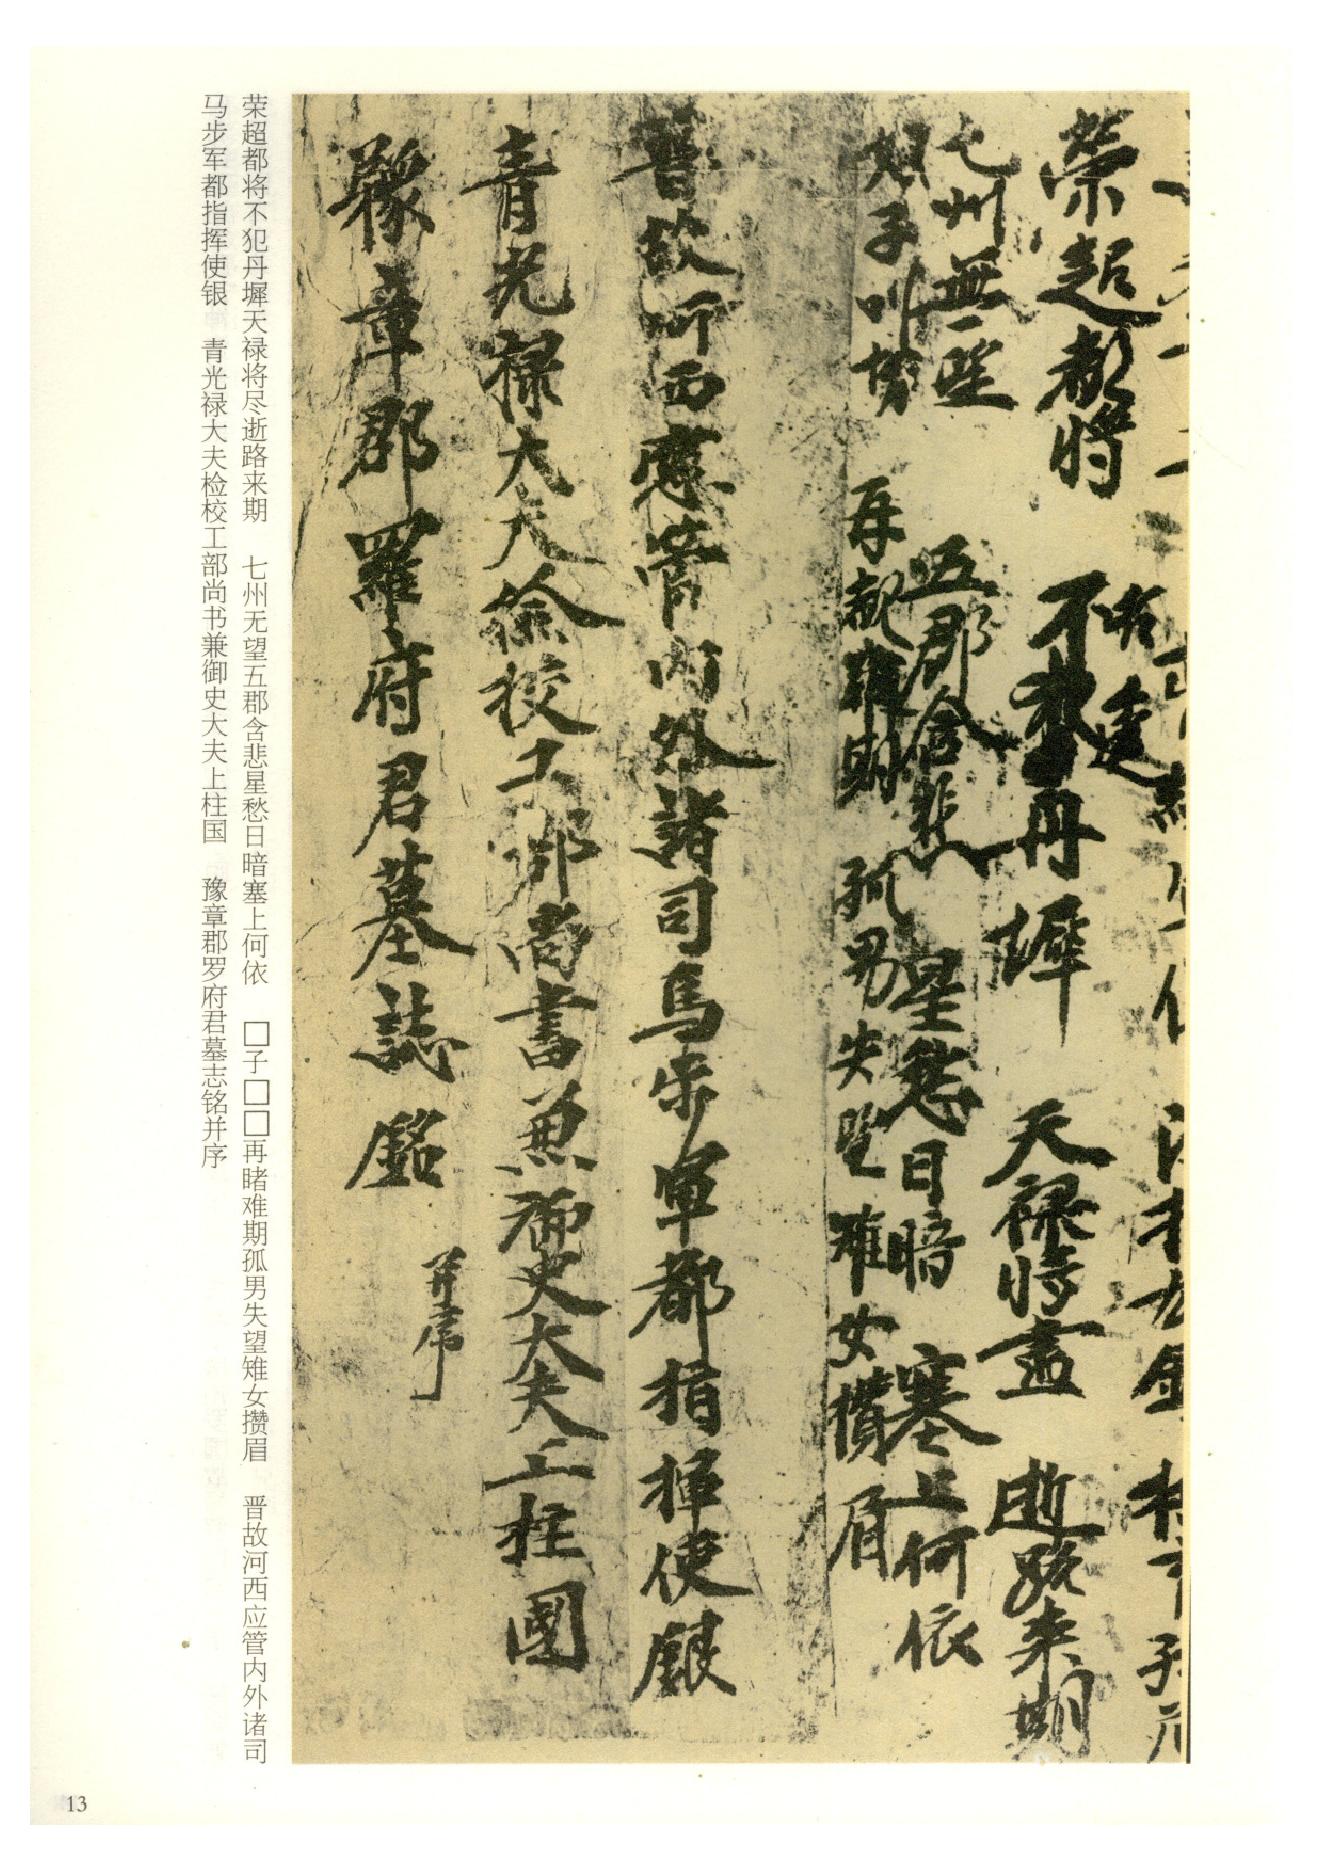 榮超都將 不犯丹墀 天祿將盡 逝路来期
七州無望 五郡含悲 星愁日暗 塞上何依
子 再覩難期 孤男失望 雉女攢眉
晉故河西應管內外諸司馬步軍都指揮使銀
青光祿大夫檢校工部尚書兼御史大夫上柱國
豫章郡羅府君墓誌銘 并序
荣超都将不犯丹墀天禄将尽逝路来期 七州无望五郡含悲星愁日暗塞上何依 □子□□再睹难期孤男失望雉女攒眉 晋故河西应管内外诸司
马步军都指挥使银 青光禄大夫检校工部尚书兼御史大夫上柱国 豫章郡罗府君墓志铭并序
13